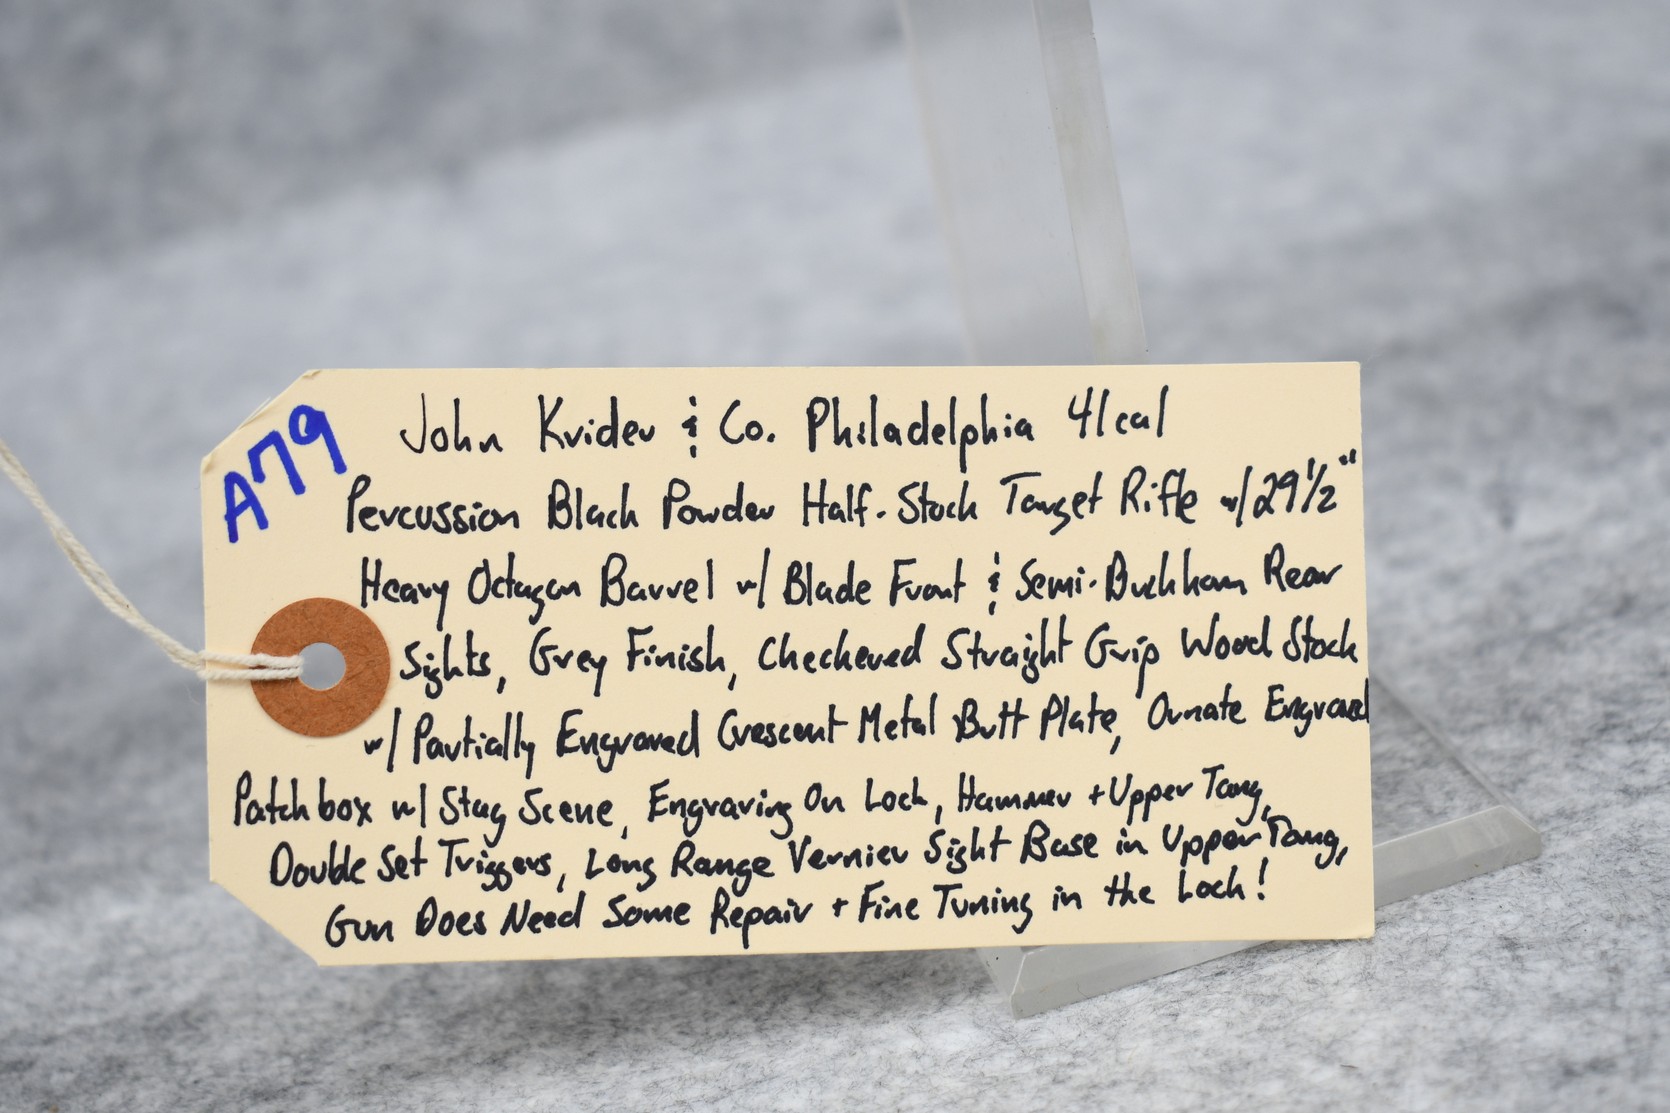 A79
John Krider & Co. Philadelphia 41cal
Percussion Black Powder Half-Stock Target Rifle w/29½"
Heavy Octagon Barrel w/ Blade Front & Semi-Buckhorn Rear
Sights, Grey Finish, Checkered Straight Grip Wood Stock
w/ Partially Engraved Crescent Metal Butt Plate, Ornate Engraved
Patchbox w/ Stag Scene, Engraving On Lock, Hammer + Upper Tang,
Double Set Triggers, Long Range Vernier Sight Base in Upper Tang,
Gun Does Need Some Repair + Fine Tuning in the Lock!